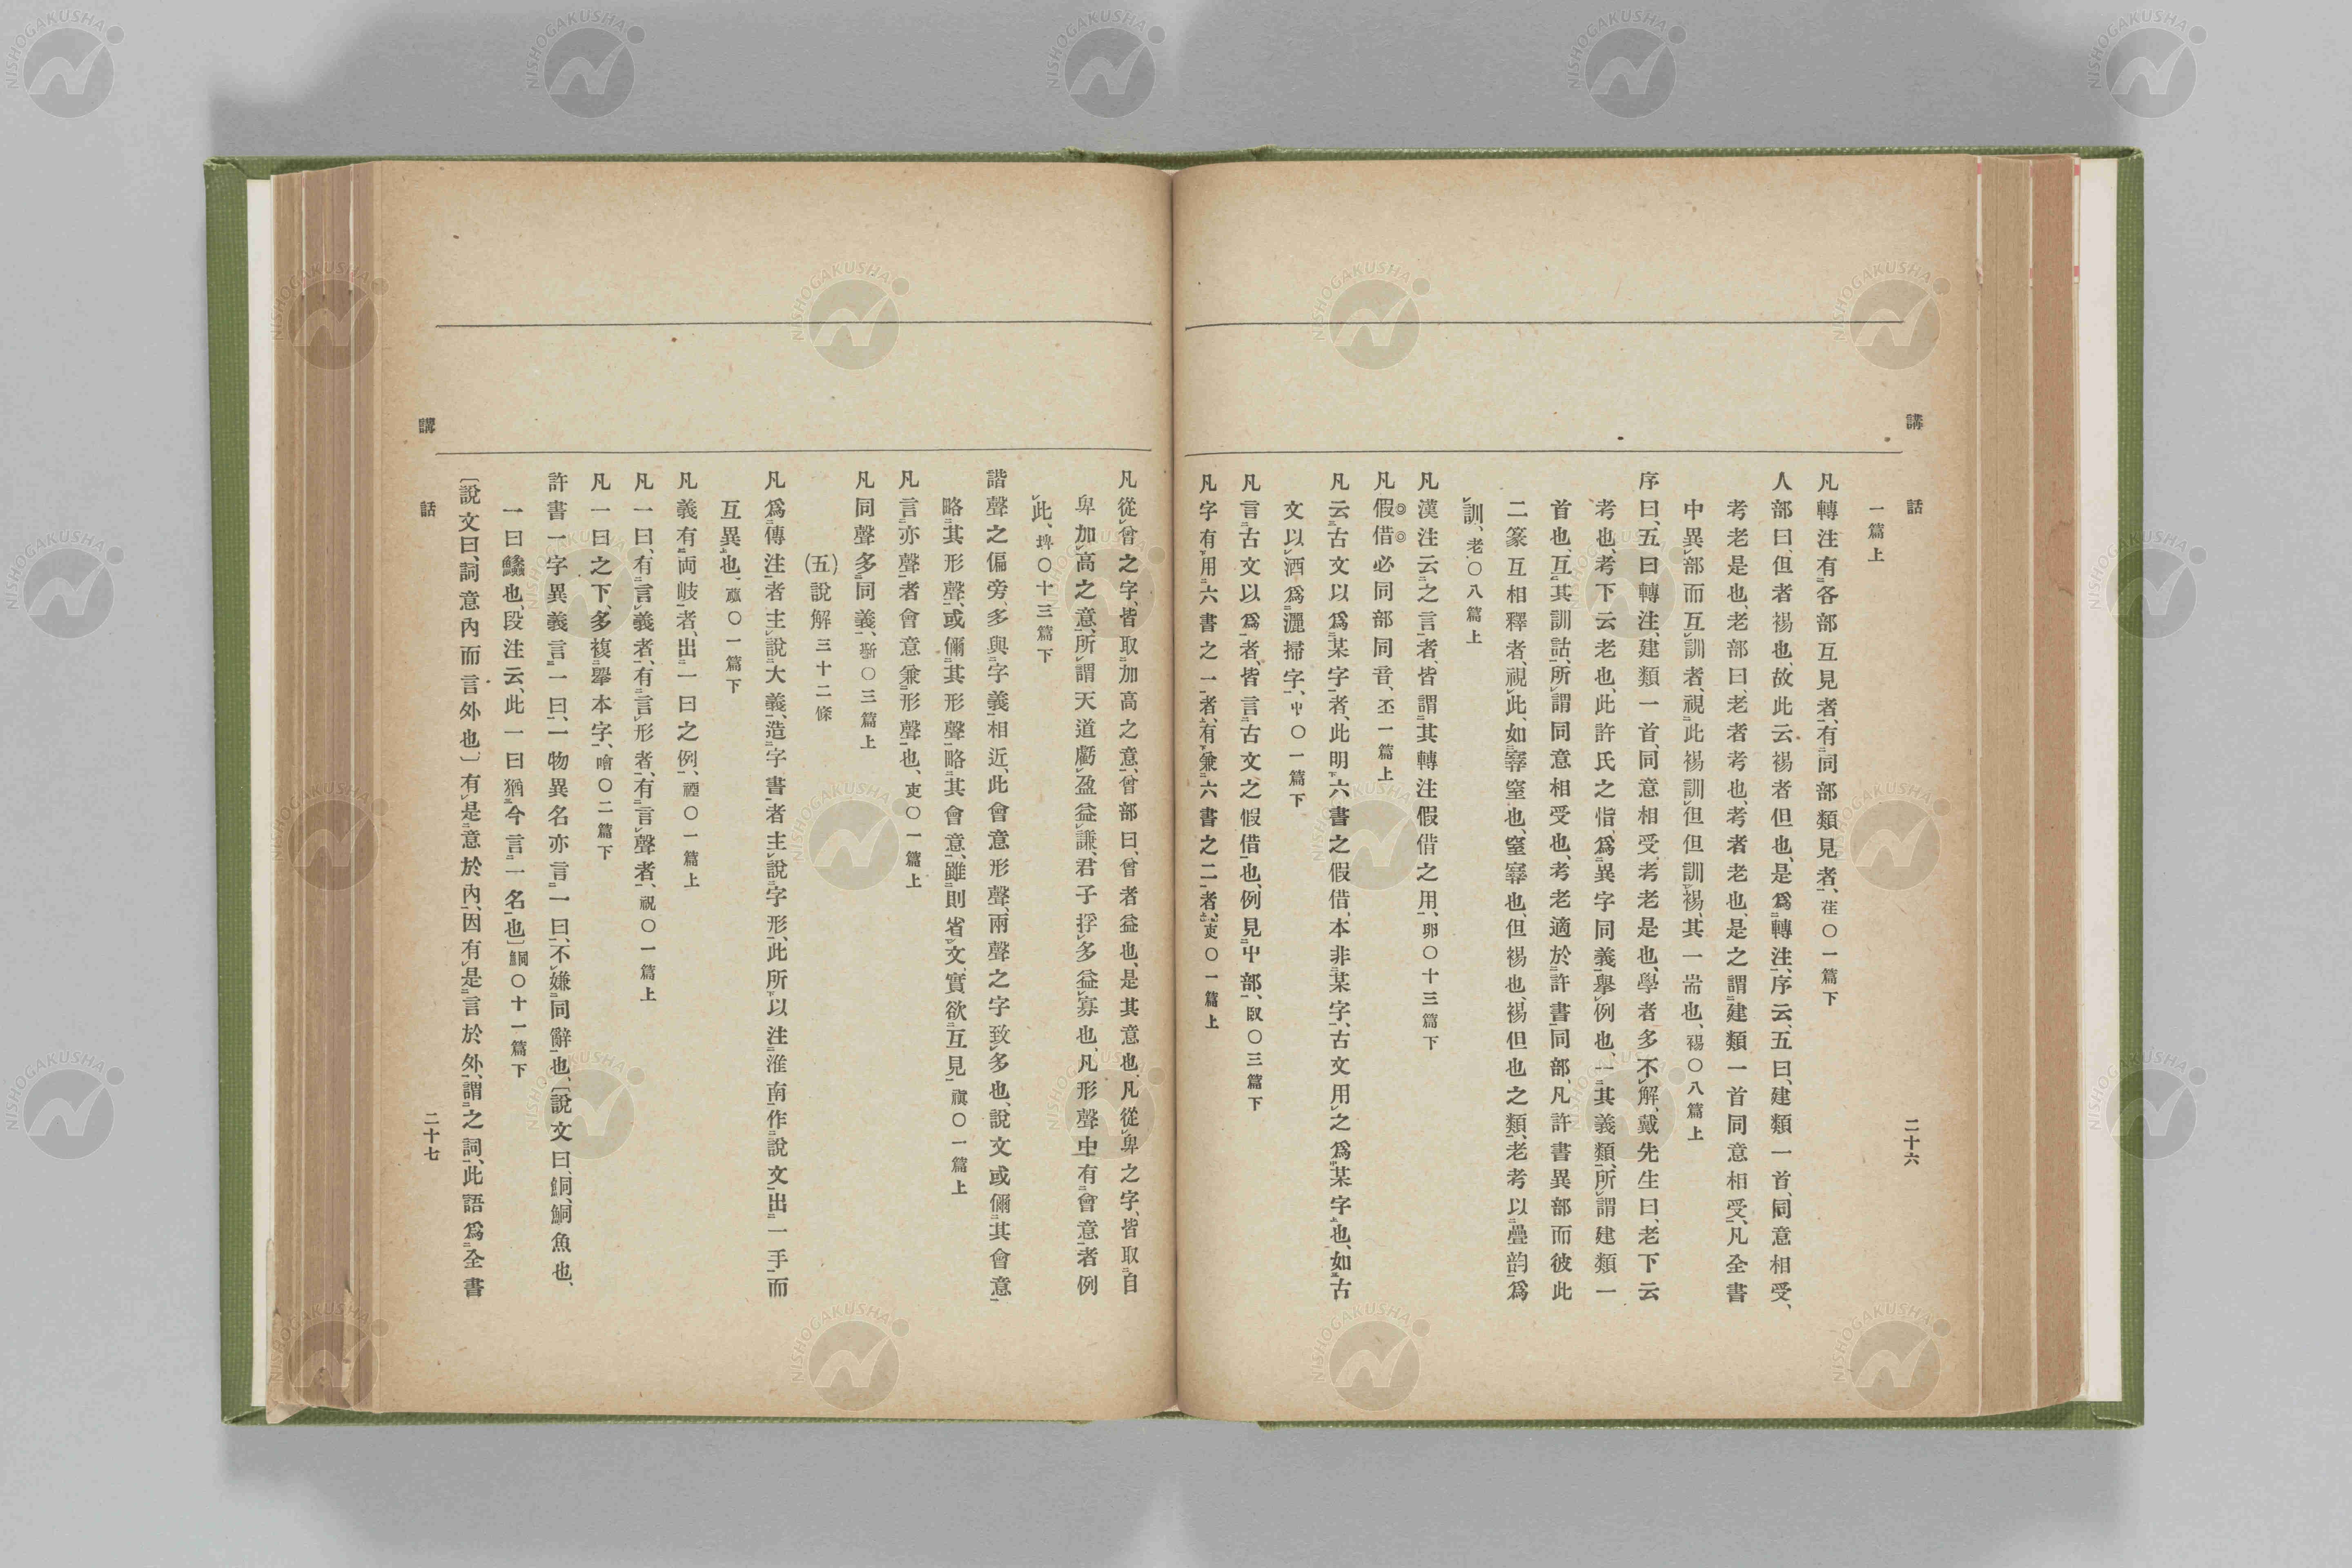 講話
二十六
一篇上
凡轉注有各部互見者、有同部類見者、茬〇一篇下
人部曰、但者裼也、故此云裼者但也、是爲轉注、序云、五曰、建類一首、同意相受、
考老是也、老部曰、老者考也、考者老也、是之謂建類一首同意相受、凡全書
中異部而互訓者、視此裼訓但但訓裼、其一耑也、裼〇八篇上
序曰、五曰轉注、建類一首、同意相受、考老是也、學者多不解、戴先生曰、老下云
考也、考下云老也、此許氏之恉、爲異字同義擧例也、一其義類、所謂建類一
首也、互其訓詁、所謂同意相受也、考老適於許書同部、凡許書異部而彼此
二篆互相釋者、視此、如窸窒也、窒窸也、但裼也、裼但也之類、老考以疊韵爲
訓、老〇八篇上
凡漢注云之言者、皆謂其轉注假借之用、卵〇十三篇下
凡假借必同部同音、丕一篇上
凡云古文以爲某字者、此明六書之假借、本非某字、古文用之爲某字也、如古
文以洒爲灑掃字、屮〇一篇下
凡言古文以爲者、皆言古文之假借也、例見屮部、臤〇三篇下
凡字有用六書之一者、有兼六書之二者、吏〇一篇上
凡從曾之字、皆取加高之意、曾部曰、曾者益也、是其意也、凡從卑之字、皆取自
卑加高之意、所謂天道虧盈益謙、君子捊多益寡也、凡形聲中有會意者例
此、埤〇十三篇下
諧聲之偏旁、多與字義相近、此會意形聲、兩聲之字致多也、說文或偁其會意、
略其形聲、或偁其形聲略其會意、雖則省文、實欲互見、禛〇一篇上
凡言亦聲者會意兼形聲也、吏〇一篇上
凡同聲多同義、㪿〇三篇上
(五)說解三十二條
凡爲傳注者主說大義、造字書者主說字形、此所以注淮南作說文出一手而
互異也、蘸〇一篇下
凡義有兩岐者、出一曰之例、禋〇一篇上
凡一曰、有言義者、有言形者、有言聲者、祝〇一篇上
凡一曰之下、多複擧本字、噲〇二篇下
許書一字異義言一曰、一物異名亦言一曰、不嫌同辭也、〔說文曰、鮦、鮦魚也、
一曰鱶也、段注云、此一曰猶今言一名也〕鮦〇十一篇下
〔說文曰、詞意內而言外也、〕有是意於內、因有是言於外、謂之詞、此語爲全書
講話
二十七